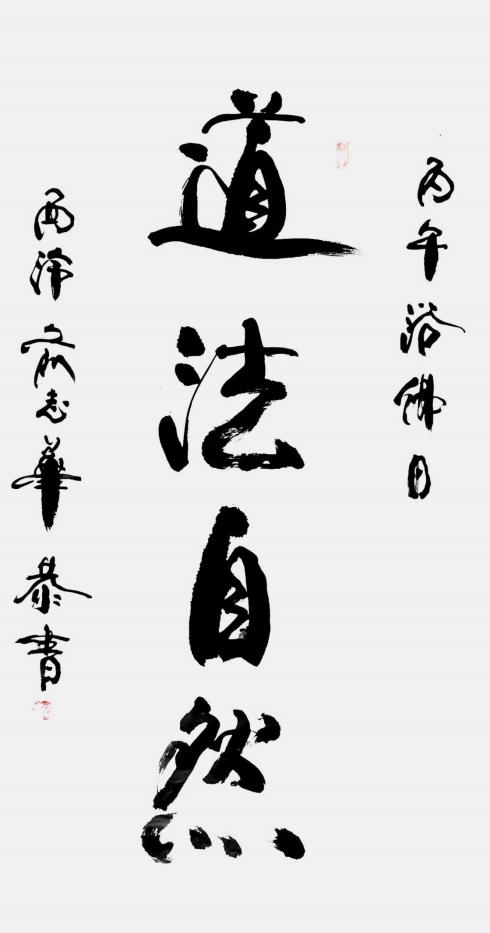 丙午浴佛日
道法自然
志華恭書